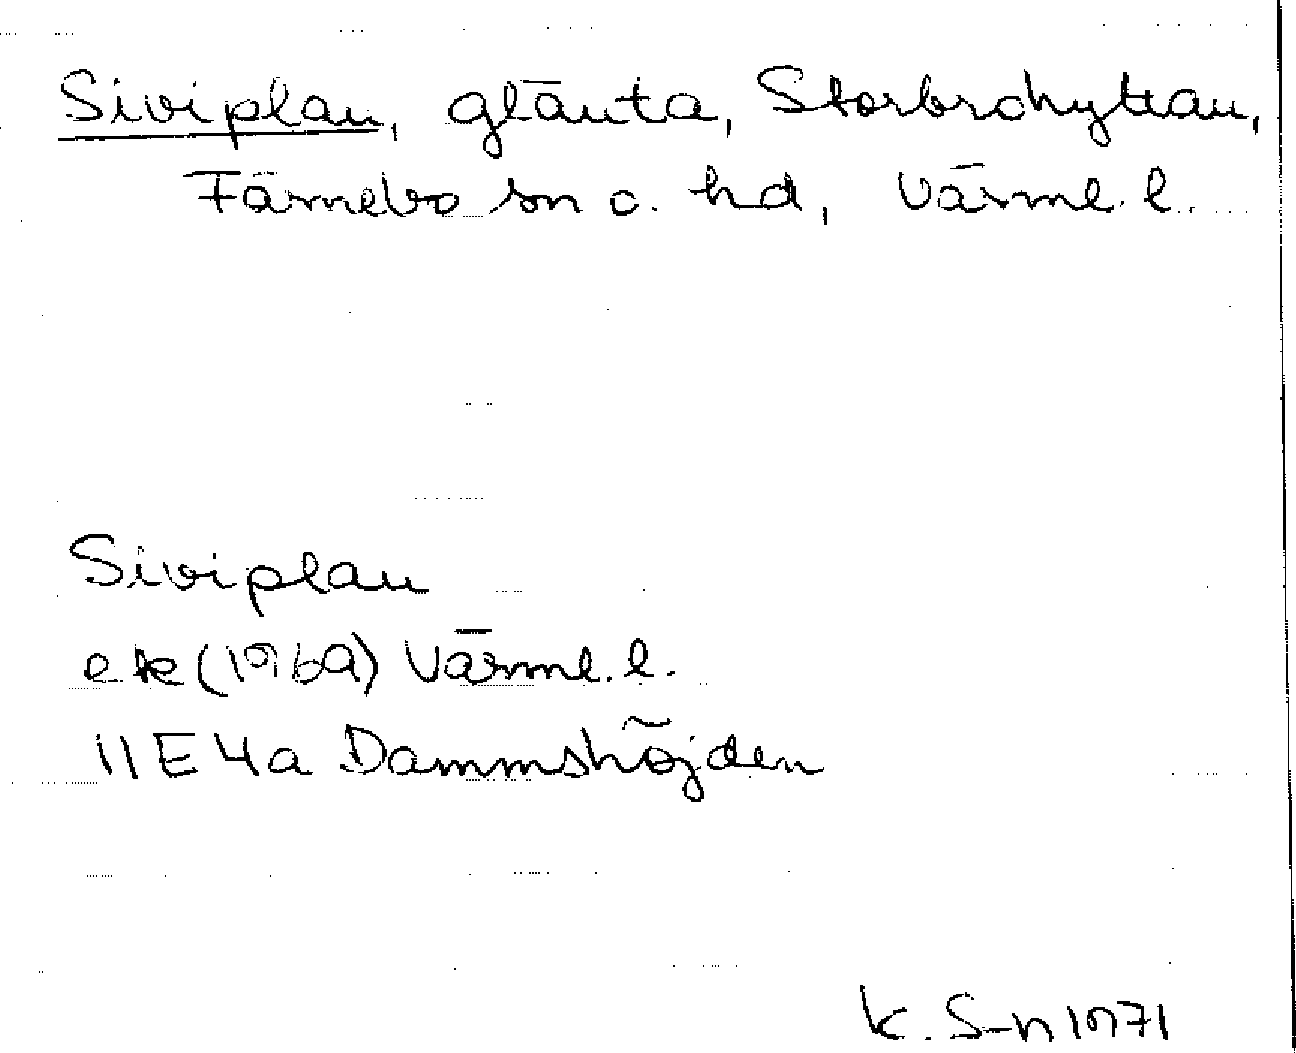 Siviplan, glänta, Storbrohyttan,
Färnebo sn o. hd, Värml. l.
Siviplan
ek (1969) Värml. l.
11E4a Dammshöjden
K. S-n 1971